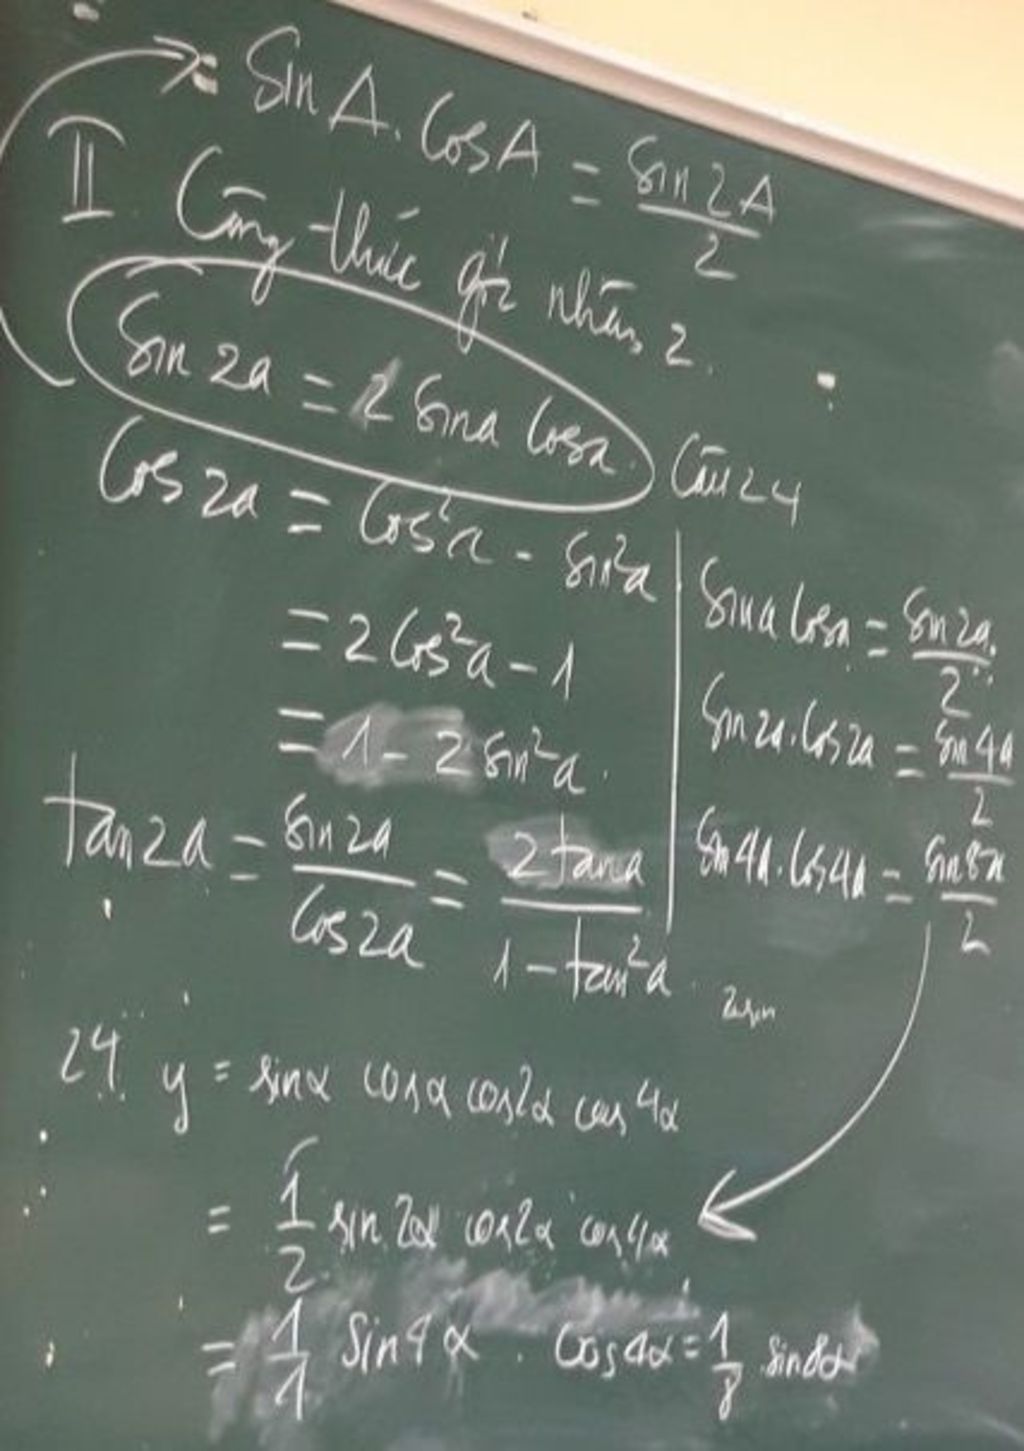 ⇒ Sin A. Cos A = Sin 2A / 2
II Công thức góc nhân 2.
Sin 2a = 2 Sina Cosa.
Cos 2a = Cos²a - Sin²a
= 2Cos²a - 1
= 1 - 2 Sin²a.
tan 2a = Sin 2a / Cos 2a = 2tana / 1 - tan²a
Câu 24
Sina Cosa = Sin 2a / 2
Sin 2a. Cos 2a = Sin 4a / 2
Sin 4a. Cos 4a = Sin 8a / 2
2sin
24. y = sinα cosα cos2α cos4α
= 1/2 sin 2α cos2α cos4α
= 1/4 Sin4α . Cos4α = 1/8 sin8α